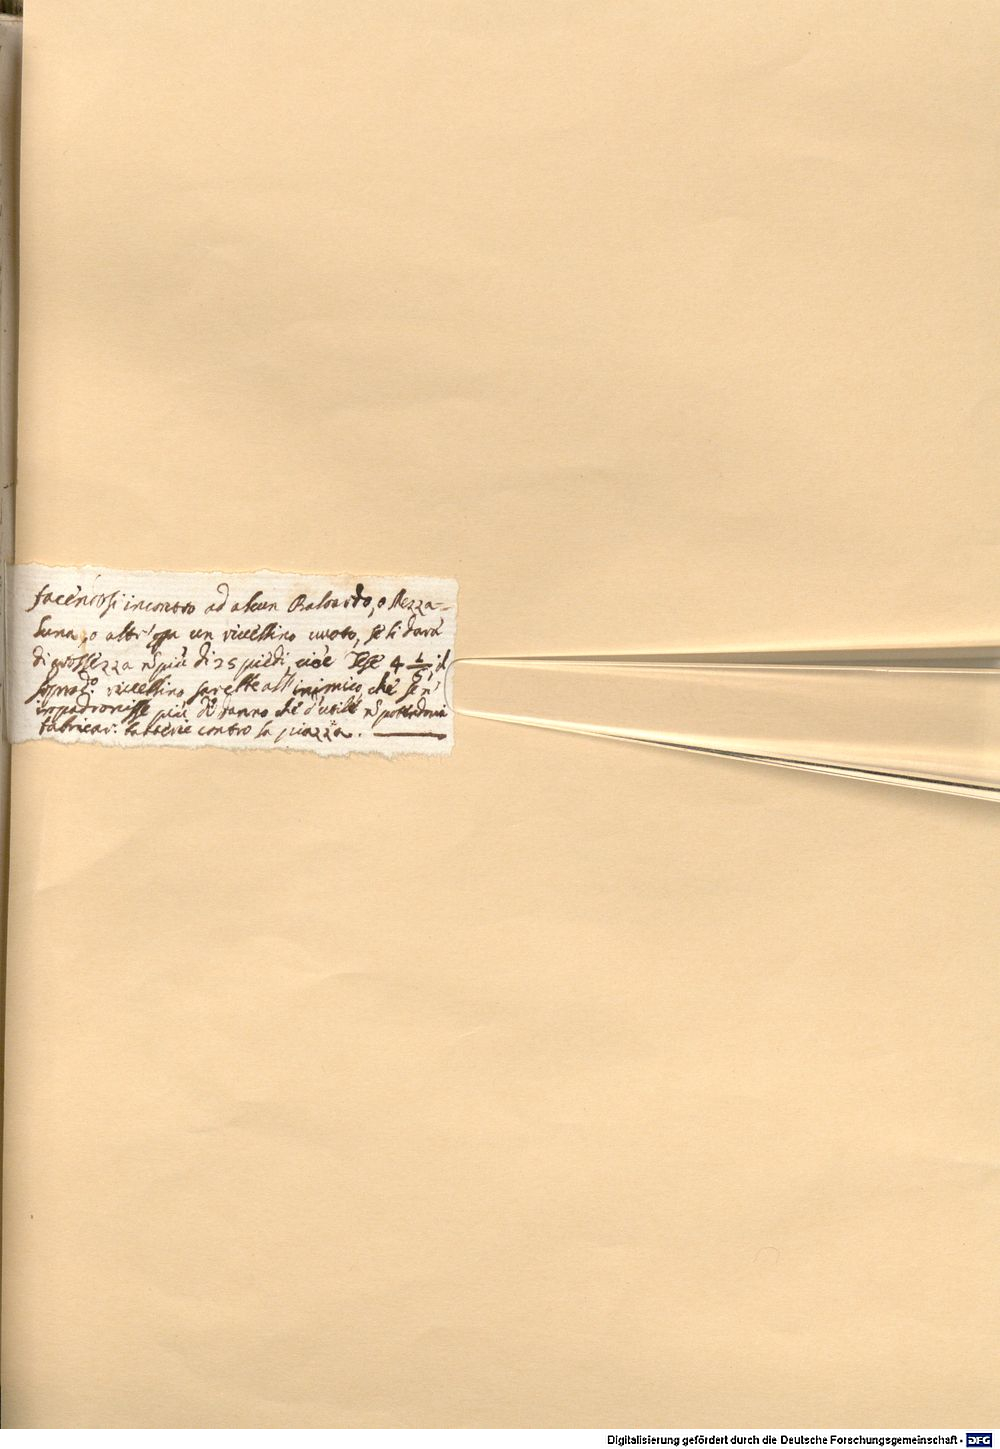 facendosi incontro ad alcun Baloardo, o Mezza-
Luna, o altr' opa un rivellino vuoto, se li darà
di grossezza nō più di 25 piedi, cioè Tese 4 1/6, il
soprad.º rivellino sarebbe all' inimico, che se n'
impadronisse più di danno che d'utile nō potendovi
fabricar batterie contro la piazza.
Digitalisierung gefördert durch die Deutsche Forschungsgemeinschaft - DFG